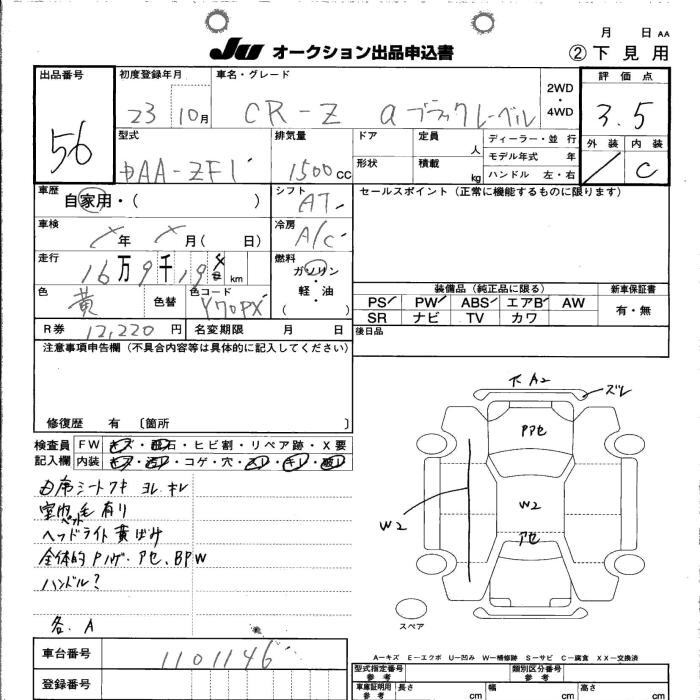 月 日 AA
JU オークション出品申込書
② 下 見 用
出品番号
56
初度登録年月
23 10月
車名・グレード
CR-Z αブラックレーベル
2WD・4WD
評 価 点
3.5
外 装 内 装
C
型式
DAA-ZF1
排気量
1500 cc
ドア
定員 人
形状
積載 kg
ディーラー・並 行
モデル年式 年
ハンドル 左・右
車歴
自家用・( )
シフト
AT
セールスポイント (正常に機能するものに限ります)
車検
年 月( 日)
冷房
A/C
走行
16万9千19 km
燃料
ガソリン・軽・油
( )
色
黄
色替
色コード
Y70PX
R券 12,220 円
名変期限 月 日
装備品 (純正品に限る)
新車保証書
PS PW ABS エアB AW
SR ナビ TV カワ
有・無
後日品
注意事項申告欄 (不具合内容等は具体的に記入してください)
修復歴 有 〔箇所 〕
検査員記入欄
FW キズ・飛石・ヒビ割・リペア跡・X要
内装 キズ・汚レ・コゲ・穴・スレ・キレ・破レ
シートワキ ヨレ
室内 毛有り
ペット
ヘッドライト黄ばみ
全体的 アセ、BPW
ハンドル?
各、A
下 A2
ズレ
アセ
W2
W2
アセ
スペア
A−キズ E−エクボ U−凹み W−補修跡 S−サビ C−腐食 XX−交換済
車台番号
1101146
登録番号
型式指定番号 参考
類別区分番号 参考
車庫証明用 参考
長さ cm
幅 cm
高さ cm